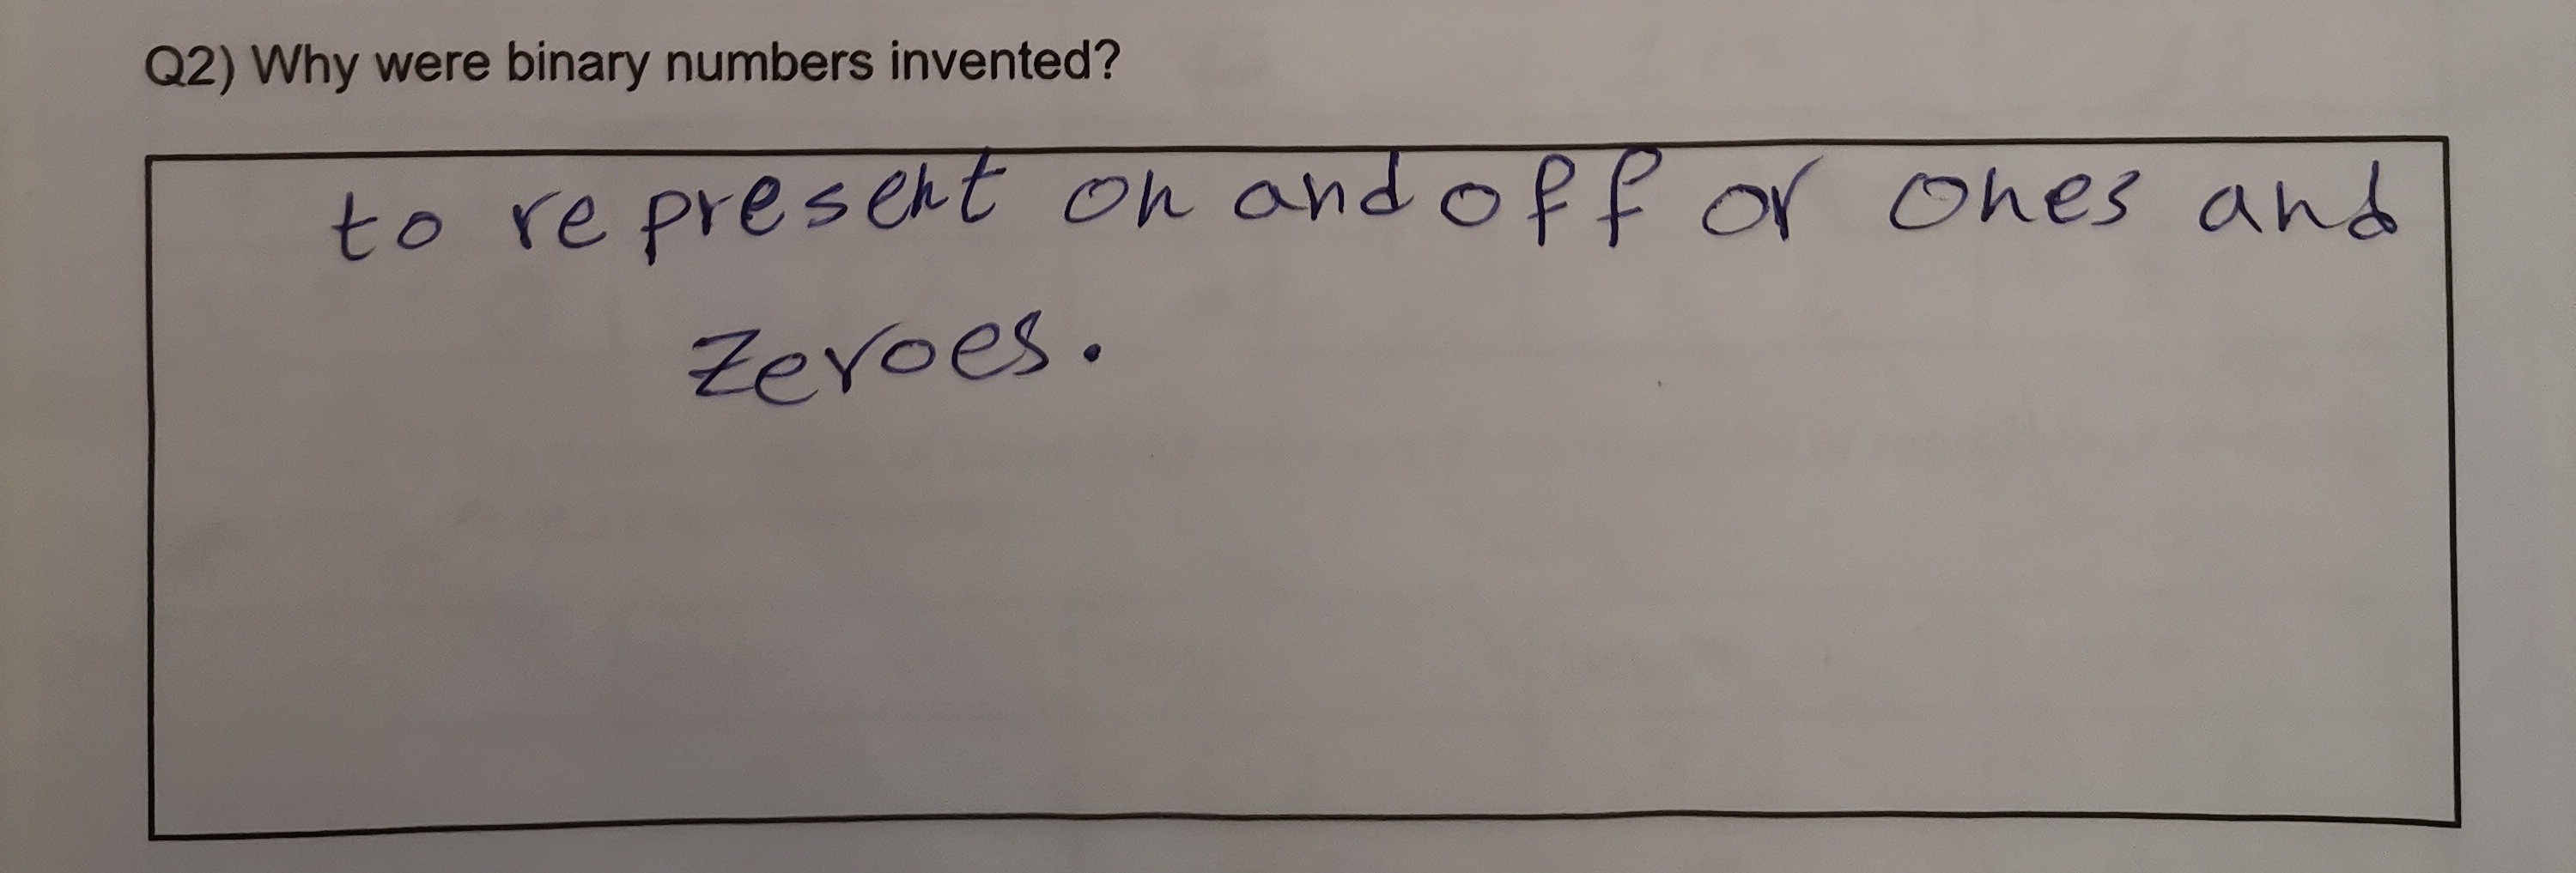 Q2) Why were binary numbers invented?
to represent on and off or ones and
zeroes.